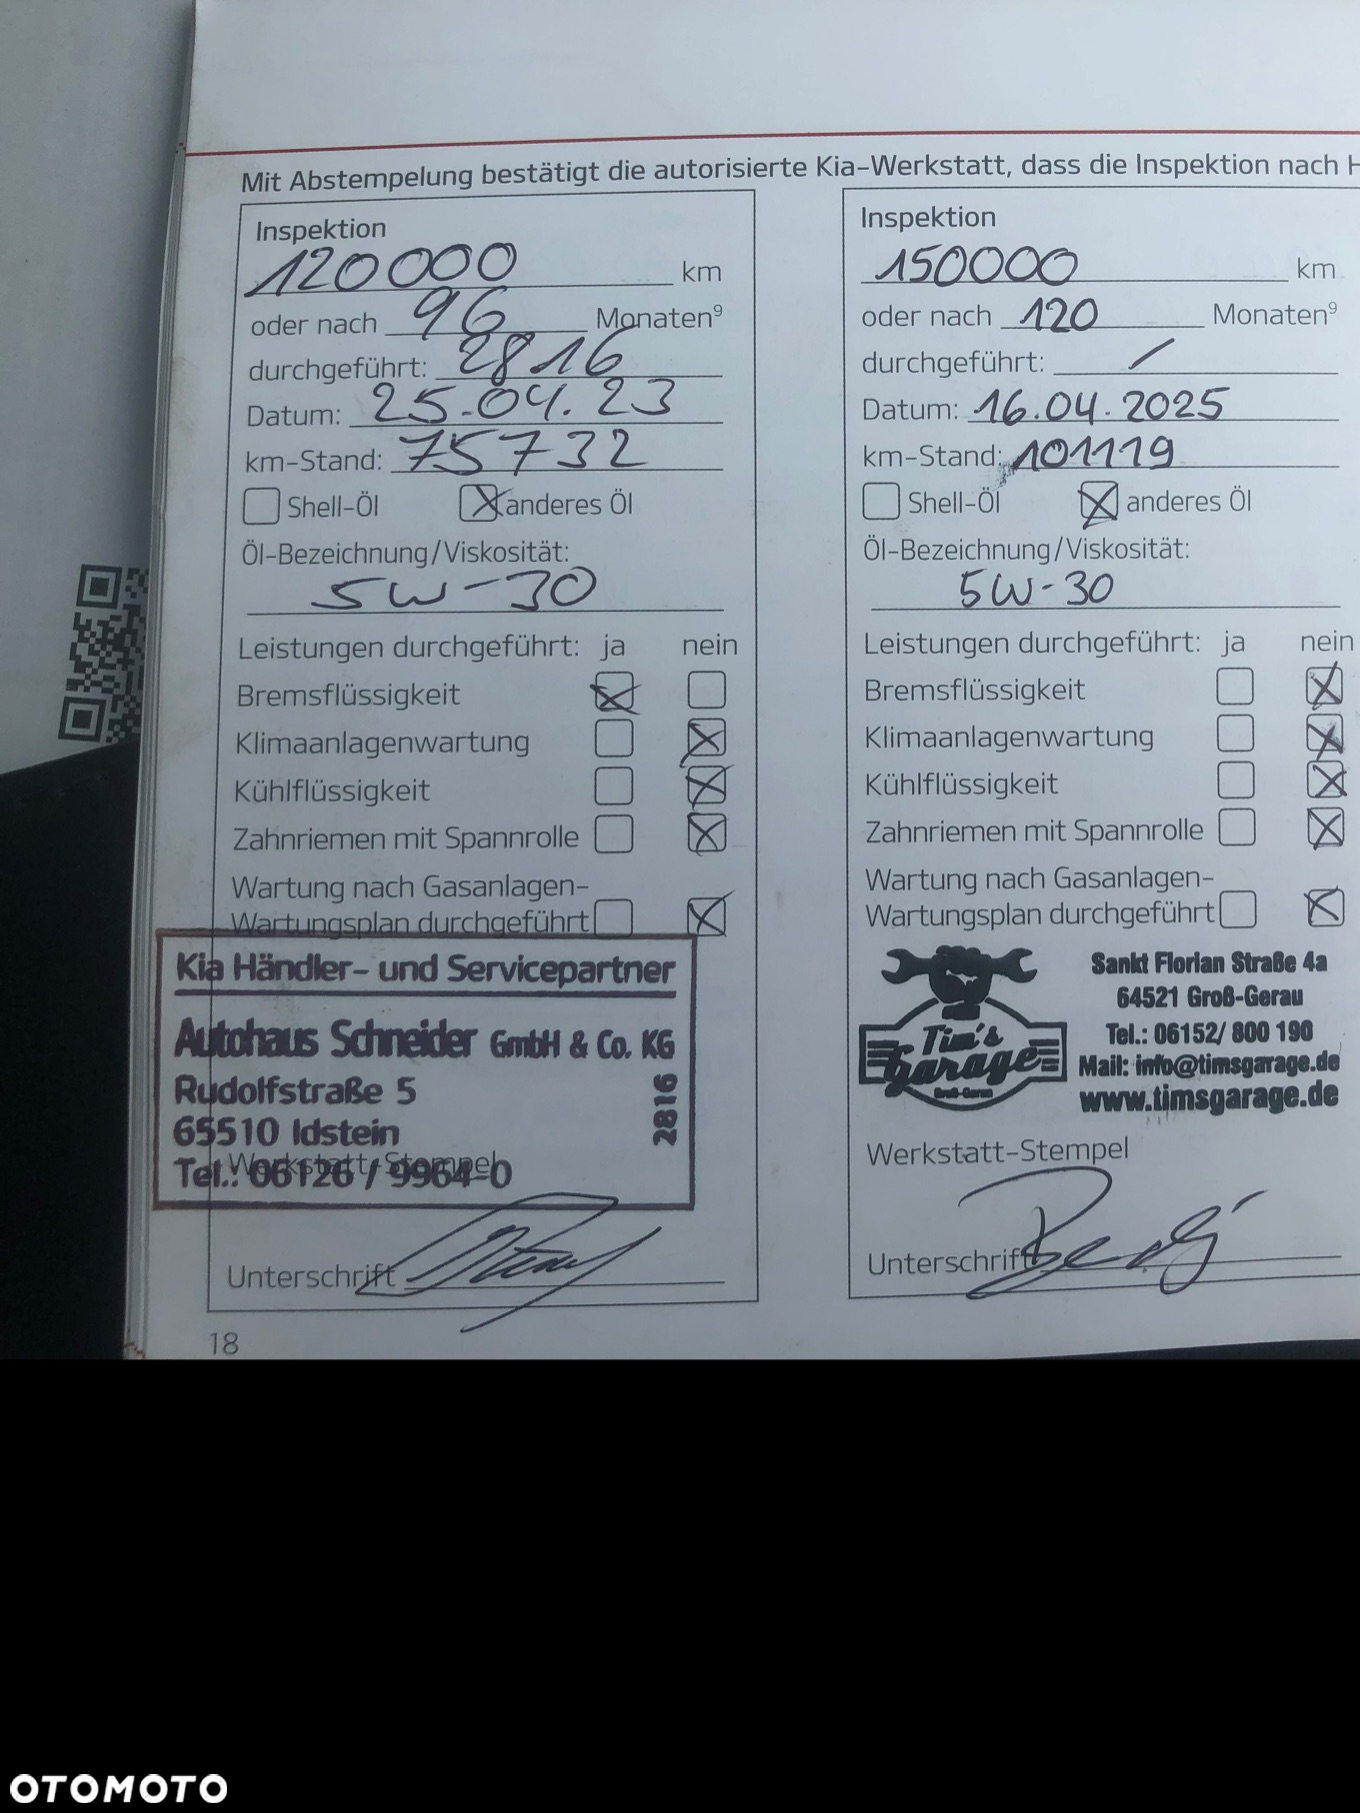 Mit Abstempelung bestätigt die autorisierte Kia-Werkstatt, dass die Inspektion nach H
Inspektion
120000 km
oder nach 96 Monaten⁹
durchgeführt: 2816
Datum: 25.04.23
km-Stand: 75732
Shell-Öl anderes Öl
Öl-Bezeichnung/Viskosität:
5W-30
Leistungen durchgeführt: ja nein
Bremsflüssigkeit
Klimaanlagenwartung
Kühlflüssigkeit
Zahnriemen mit Spannrolle
Wartung nach Gasanlagen-
Wartungsplan durchgeführt
Kia Händler- und Servicepartner
Autohaus Schneider GmbH & Co. KG
Rudolfstraße 5
65510 Idstein
2816
Tel.: 06126 / 9964-0
Werkstatt-Stempel
Unterschrift
18
Inspektion
150000 km
oder nach 120 Monaten⁹
durchgeführt: /
Datum: 16.04.2025
km-Stand: 101119
Shell-Öl anderes Öl
Öl-Bezeichnung/Viskosität:
5W-30
Leistungen durchgeführt: ja nein
Bremsflüssigkeit
Klimaanlagenwartung
Kühlflüssigkeit
Zahnriemen mit Spannrolle
Wartung nach Gasanlagen-
Wartungsplan durchgeführt
Tim's
Garage
Groß-Gerau
Sankt Florian Straße 4a
64521 Groß-Gerau
Tel.: 06152/ 800 190
Mail: info@timsgarage.de
www.timsgarage.de
Werkstatt-Stempel
Unterschrift
OTOMOTO